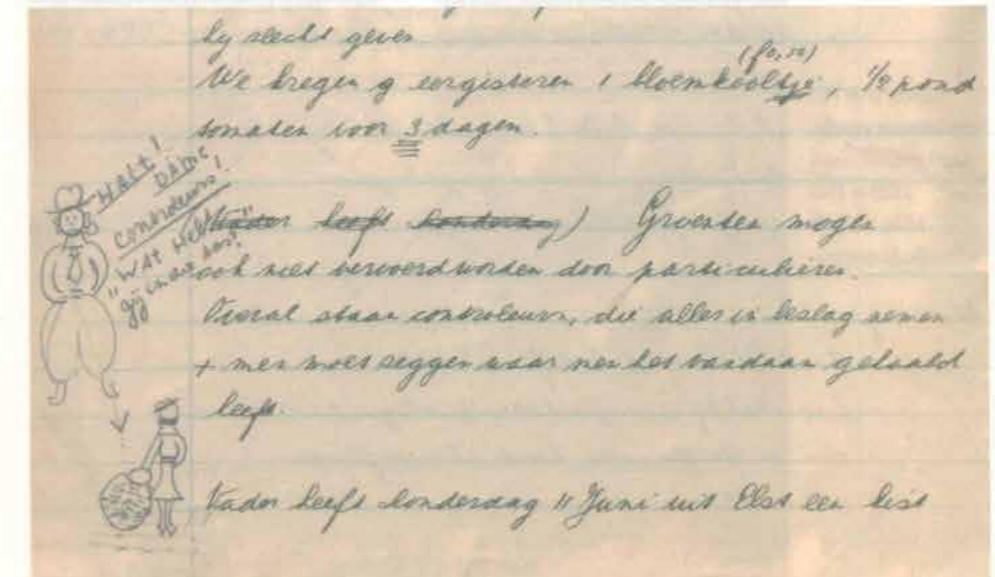 hy slecht geven
(f0,10)
We kregen g eergisteren 1 bloemkooltje, 1/2 pond
tomaten voor 3 dagen.
HALT!
DAME
controleurs!
"WAT HEBT
gij in uw tas?"
Vader heeft donderdag) Groenten mogen
ook niet vervoerd worden door particulieren.
Overal staan controleurs, die alles in beslag nemen
+ men moet zeggen waar men het vandaan gehaald
heeft.
Vader heeft donderdag 11 Juni uit Elst een kist